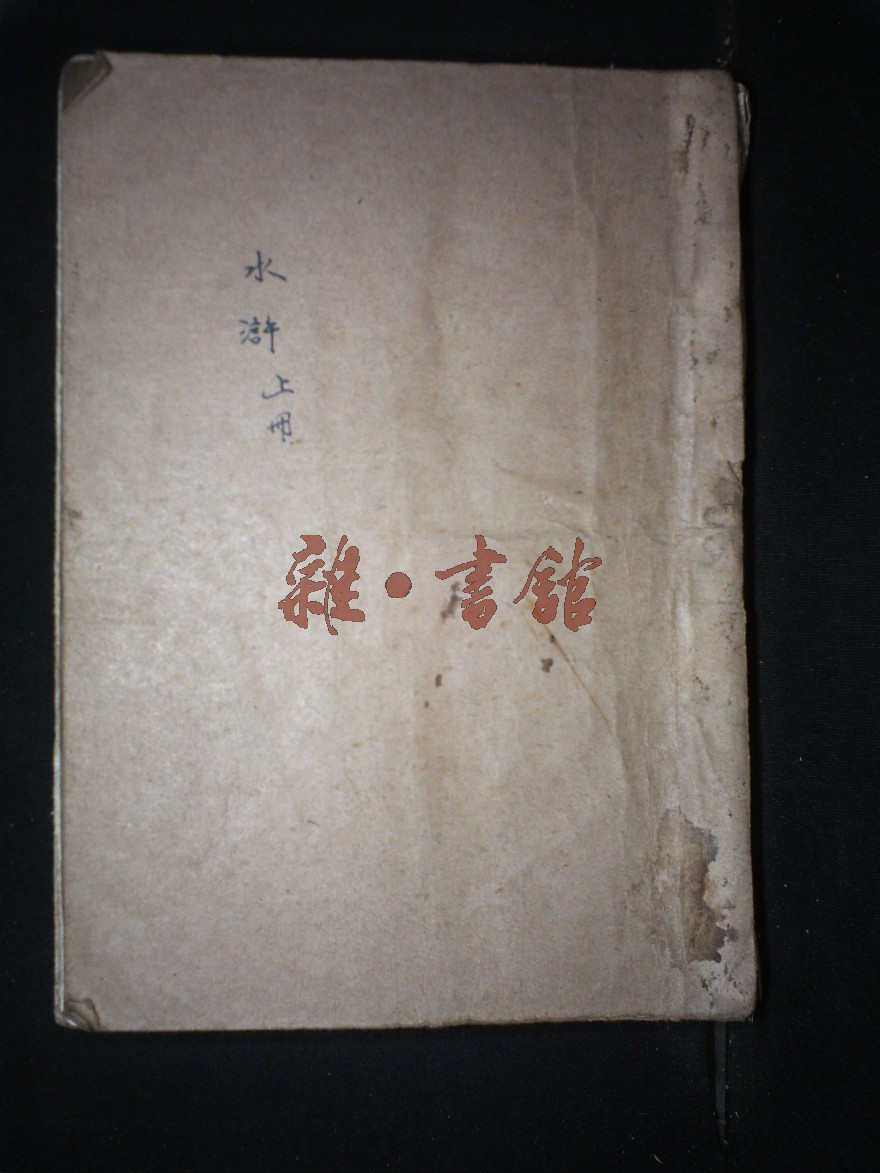 水滸上冊
雜·書館